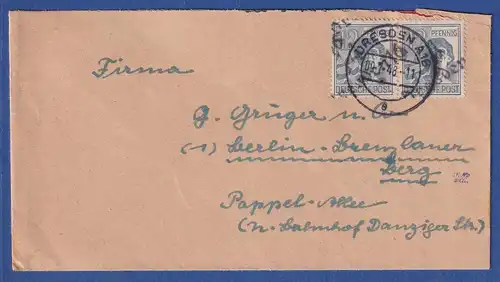 PFENNIG
DRESDEN A16
12
-7.48
11
DEUTSCHE POST
POST
a
Firma
G. Grüger u. Co
(1) Berlin-Prenzlauer
berg
Pappel-Allee
(n. Bahnhof Danziger Str.)